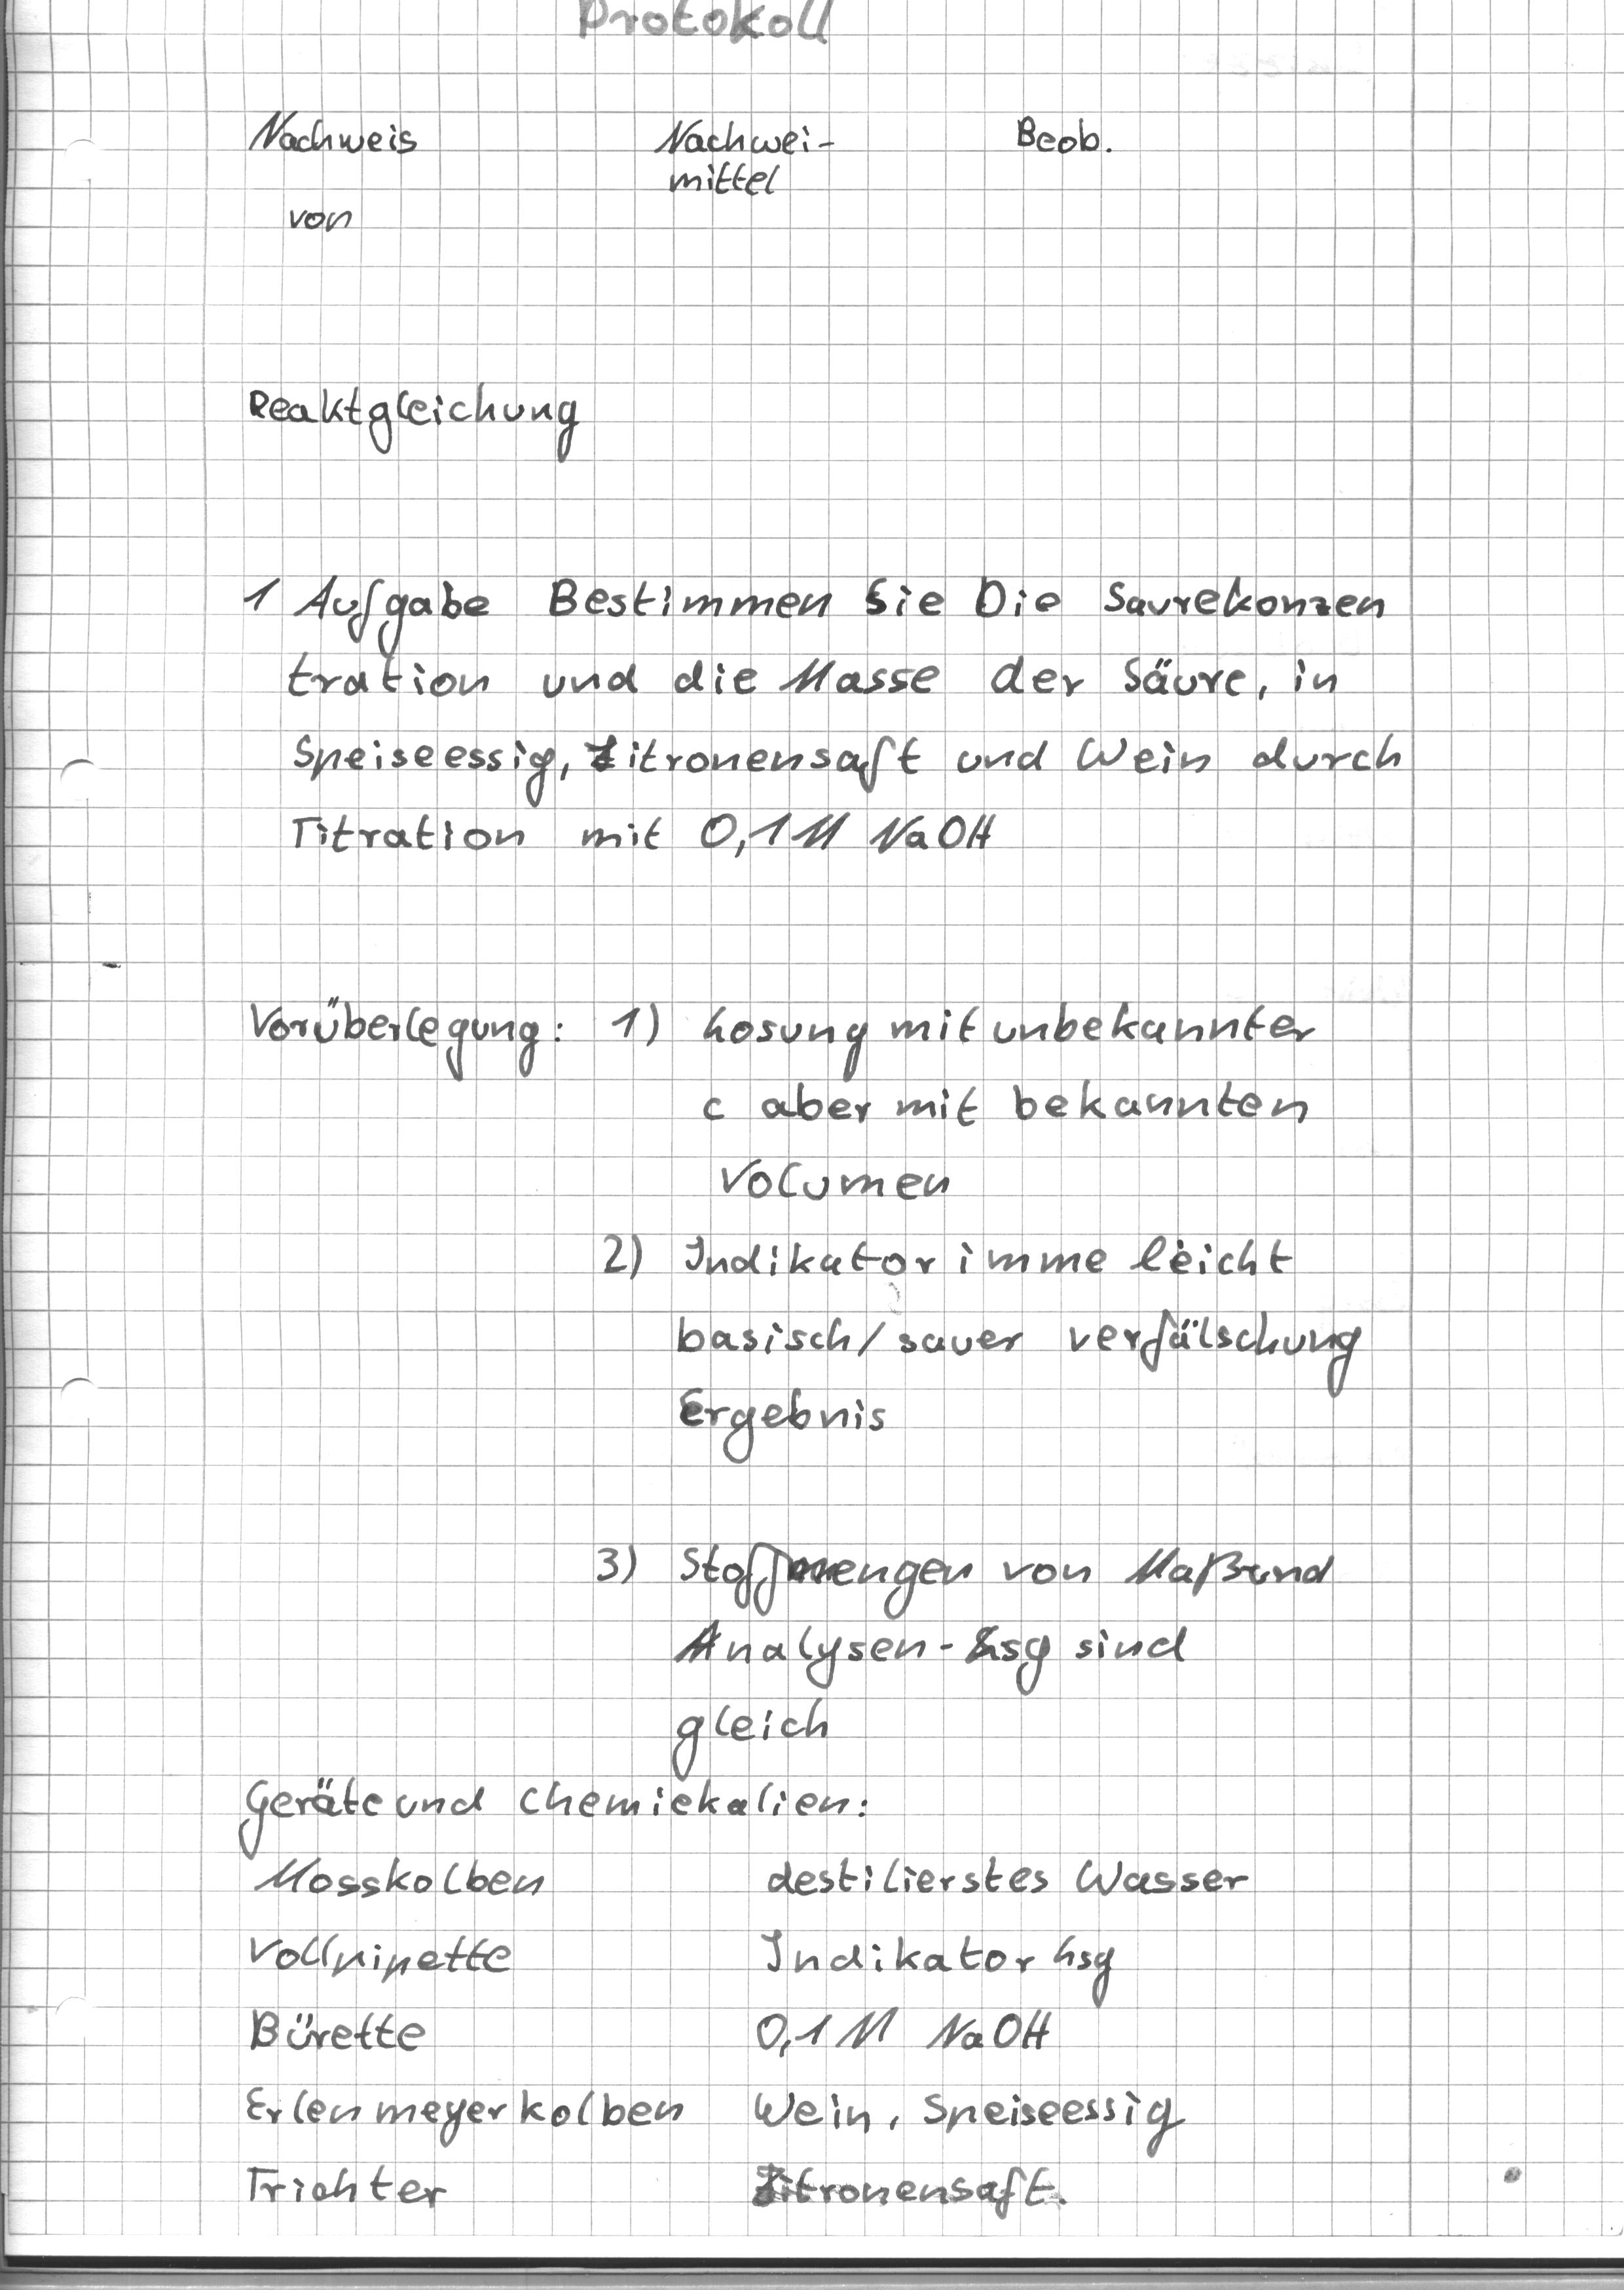 Protokoll
Nachweis Nachwei- Beob.
mittel
von
Reaktgleichung
1 Aufgabe Bestimmen Sie Die Saurekonzen
tration und die Masse der Säure, in
Speiseessig, Zitronensaft und Wein durch
Titration mit 0,1M NaOH
Vorüberlegung: 1) Losung mit unbekannter
c aber mit bekannten
Volumen
2) Indikator imme leicht
basisch/sauer verfälschung
Ergebnis
3) Stoffmengen von Maß und
Analysen-Lsg sind
gleich
Geräte und Chemiekalien:
Mosskolben destilierstes Wasser
Vollpipette Indikator Lsg
Bürette 0,1 M NaOH
Erlenmeyerkolben Wein, Speiseessig
Trichter Zitronensaft.